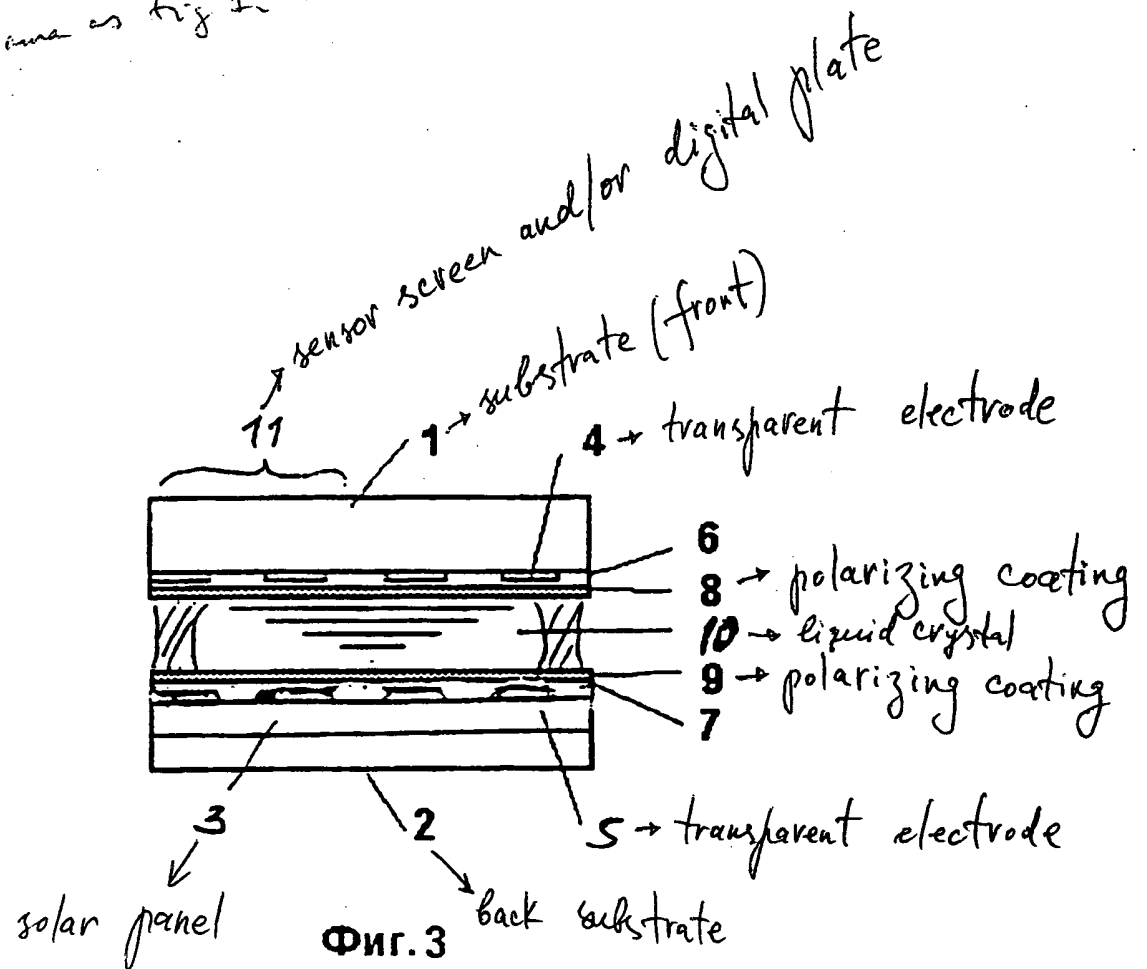 as fig 1.
11 → sensor screen and/or digital plate
1 → substrate (front)
4 → transparent electrode
6
8 → polarizing coating
10 → liquid crystal
9 → polarizing coating
7
3
2
5 → transparent electrode
solar panel
back substrate
Фиг. 3